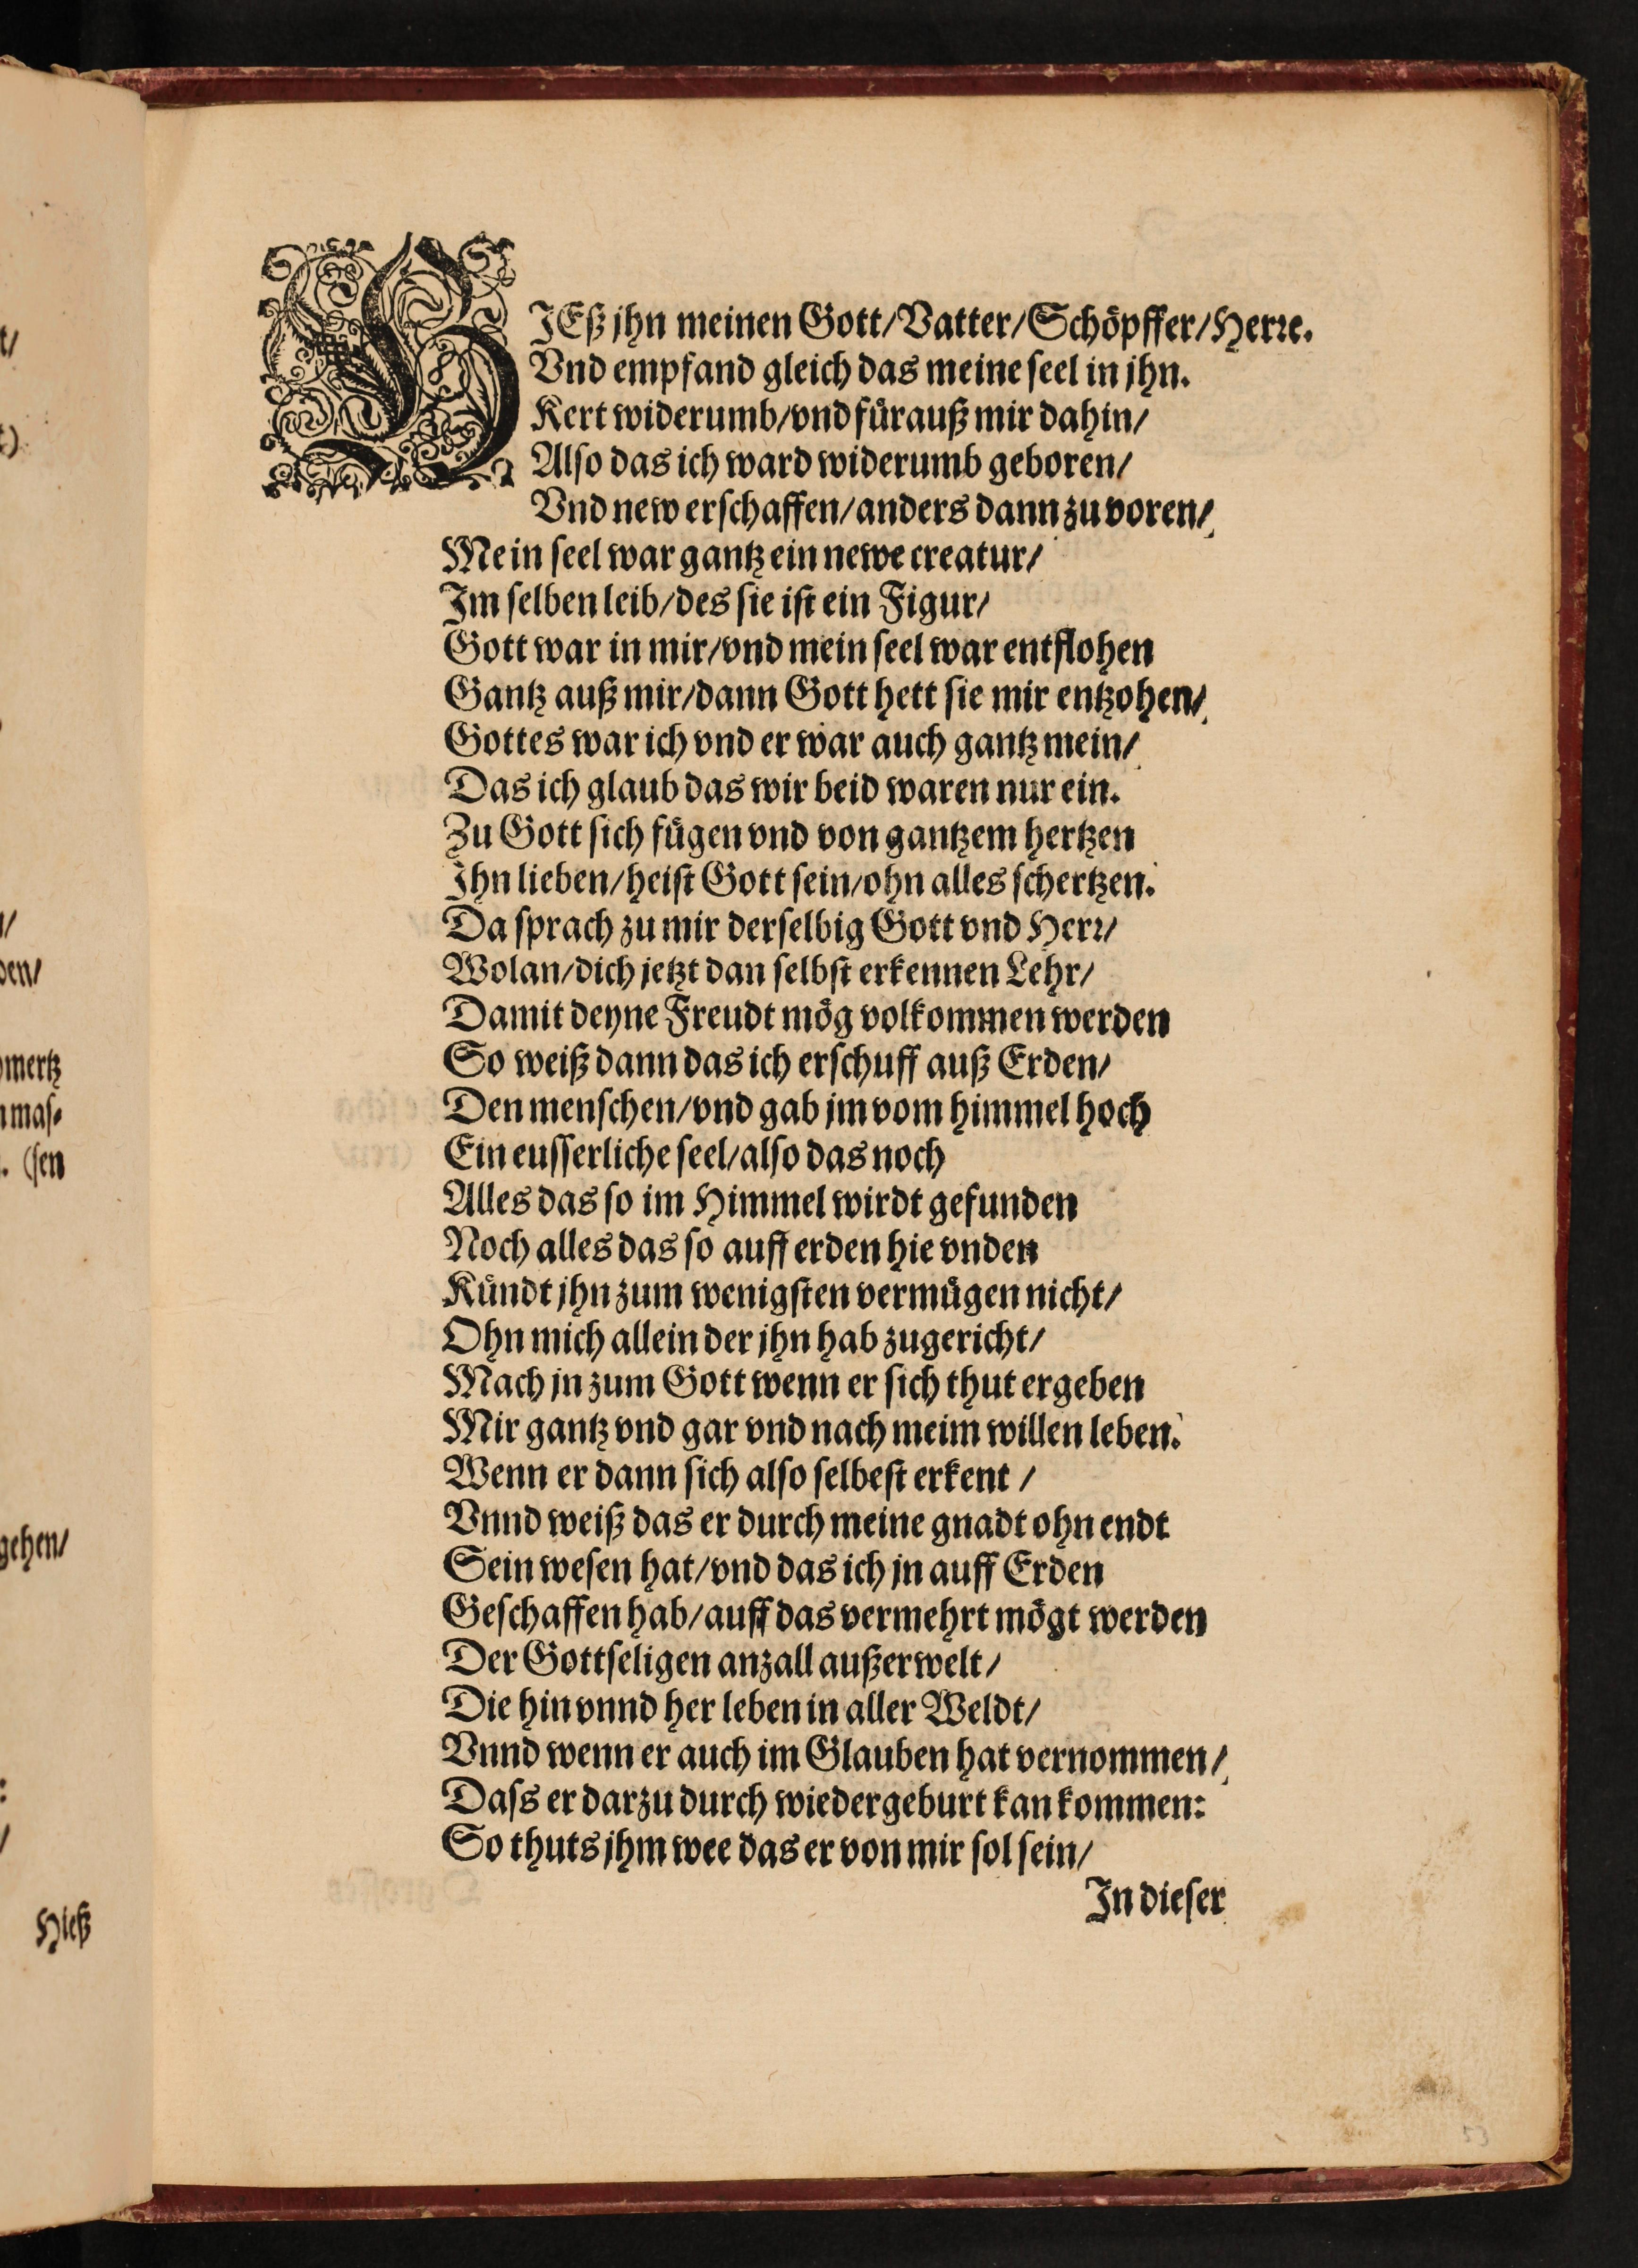 t/
t)
n/
den/
mertz
n mas-
. (sen
gehen/
:
/
Hieß
HIEß jhn meinen Gott/Vatter/Schöpffer/Herre.
Vnd empfand gleich das meine seel in jhn.
Kert widerumb/vnd fürauß mir dahin/
Also das ich ward widerumb geboren/
Vnd new erschaffen/anders dann zu voren/
Mein seel war gantz ein newe creatur/
Im selben leib/des sie ist ein Figur/
Gott war in mir/vnd mein seel war entflohen
Gantz auß mir/dann Gott hett sie mir entzohen/
Gottes war ich vnd er war auch gantz mein/
Das ich glaub das wir beid waren nur ein.
Zu Gott sich fügen vnd von gantzem hertzen
Ihn lieben/heist Gott sein/ohn alles schertzen.
Da sprach zu mir derselbig Gott vnd Herr/
Wolan/dich jetzt dan selbst erkennen Lehr/
Damit deyne Freudt mög volkommen werden
So weiß dann das ich erschuff auß Erden/
Den menschen/vnd gab jm vom himmel hoch
Ein eusserliche seel/also das noch
Alles das so im Himmel wirdt gefunden
Noch alles das so auff erden hie vnden
Kündt jhn zum wenigsten vermügen nicht/
Ohn mich allein der jhn hab zugericht/
Mach jn zum Gott wenn er sich thut ergeben
Mir gantz vnd gar vnd nach meim willen leben.
Wenn er dann sich also selbest erkent /
Vnnd weiß das er durch meine gnadt ohn endt
Sein wesen hat/vnd das ich jn auff Erden
Geschaffen hab/auff das vermehrt mögt werden
Der Gottseligen anzall außerwelt/
Die hin vnnd her leben in aller Weldt/
Vnnd wenn er auch im Glauben hat vernommen/
Dass er darzu durch wiedergeburt kan kommen:
So thuts jhm wee das er von mir sol sein/
In dieser
53